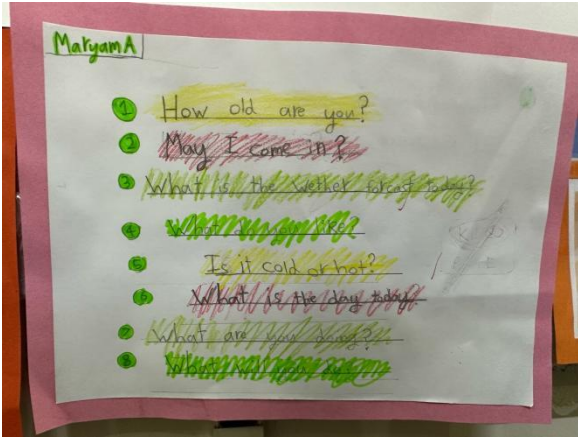 Maryam A
1 How old are you?
2 May I come in?
3 What is the wether forcast today?
4 What you like?
5 Is it cold or hot?
6 What is the day today
7 What are you doing?
8 What you